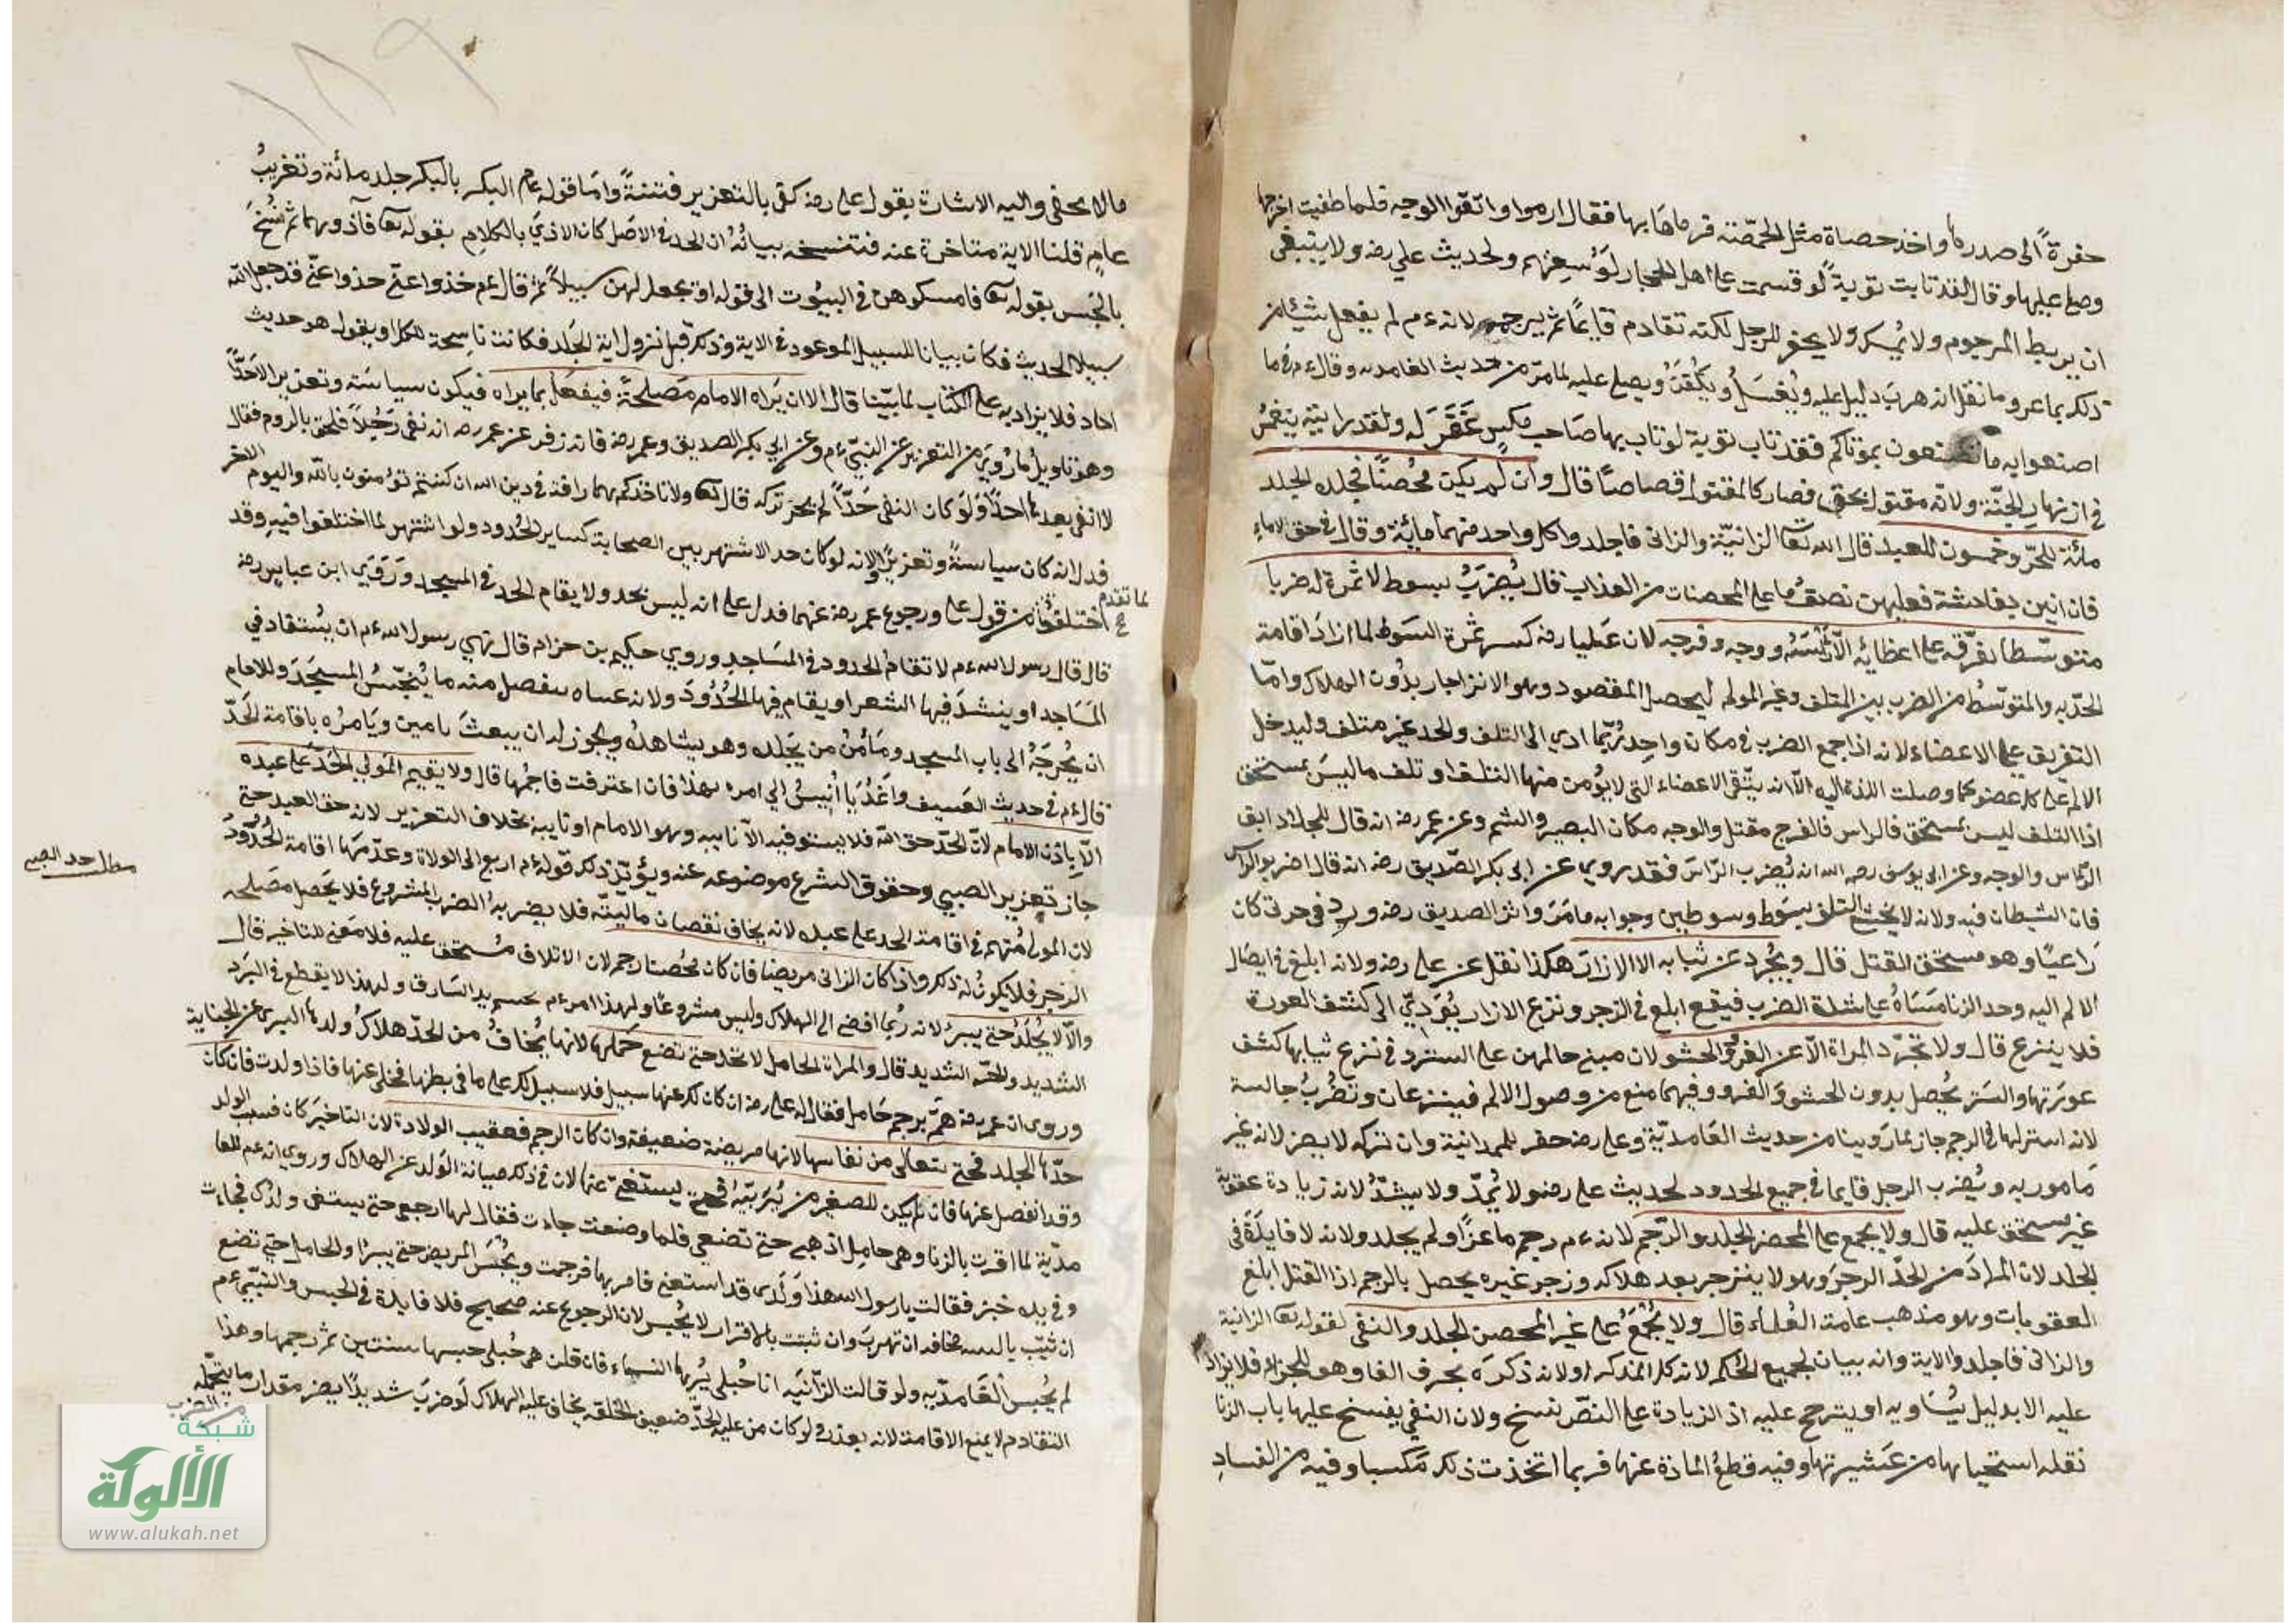 حفرة الى صدرها واخذ حصاة مثل الحمّصة فرماها بها فقال ارموا واتقوا الوجه فلما طفيت اخرجها
وصلى عليها وقال لقد تابت توبة لو قسمت على اهل الحجاز لوسعتهم ولحديث علي رضه ولا ينبغي
ان يربط المرجوم ولا يمسك ولا يحفر للرجل لكنه تقادم قايما ثم يرجم لانه ءم لم يفعل شيئا من
ذلك بماعز وما نقل انه هرب دليل عليه ويغسل ويكفن ويصلى عليه لما مر من حديث الغامدية وقال ءم في ما
اصنعوا به ما تصنعون بموتاكم فقد تاب توبة لو تاب بها صاحب مكس غفر له ولقد رايته ينغمس
في انهار الجنة ولانه مقتول بحق فصار كالمقتول قصاصا قال وان لم يكن محصنا فجلده الجلد
مائة للحر وخمسون للعبد قال الله تعا الزانية والزاني فاجلدوا كل واحد منهما مائة وقال في حق الاماء
فان اتين بفاحشة فعليهن نصف ما على المحصنات من العذاب قال يضرب بسوط لا ثمرة له ضربا
متوسطا يفرقه على اعظائه الا راسه ووجه وفرجه لان عليا رضه كسر ثمرة السوط لما اراد اقامة
الحد به والمتوسط من الضرب بين المتلف وغير المولم ليحصل المقصود وهو الانزاجار بدون الهلاك واما
التفريق على الاعضاء لانه اذا جمع الضرب في مكان واحد ربما ادي الى التلف والحد غير متلف وليدخل
الالم على كل عضو كما وصلت اللذة اليه الا انه يتقي الاعضاء التي لا يؤمن منها التلف او تلف ما ليس بمستحق
اذا التلف ليس بمستحق فالراس فالفرج مقتل والوجه مكان البصر والشم وعن عمر رضه انه قال للجلاد اتق
الراس والوجه وعن ابي يوسف رحمه الله انه يضرب الراس فقد روي عن ابي بكر الصديق رضه انه قال اضربوا الراس
فان الشيطان فيه ولانه لا يخشى التلف بسوط وسوطين وجوابه ما مر واثر الصديق رضه ورد في حربي كان
راعيا وهو مستحق القتل قال ويجرد عن ثيابه الا الازار هكذا نقل عن علي رضه ولانه ابلغ في ايصال
الالم اليه وحد الزنا مبناه على شدة الضرب فيقع ابلغ في الزجر ونزع الازار يؤدي الى كشف العورة
فلا ينزع قال ولا تجرد المراة الا عن الفرو والحشو لان مبنى حالهن على الستر وفي نزع ثيابها كشف
عورتها والستر يحصل بدون الحشو والفرو وفيهما منع من وصول الالم فينزعان وتضرب جالسة
لانه استر لها في الرجم جاز لما روينا من حديث الغامدية وعلي رضه حفر للهمدانية وان تركه لا يضر لانه غير
مامور به ويضرب الرجل قايما في جميع الحدود لحديث علي رضه ولا يمد ولا يشد لانه زيادة عقوبة
غير مستحق عليه قال ولا يجمع على المحصن الجلد والرجم لانه ءم رجم ماعزا ولم يجلد ولانه لا فايدة في
الجلد لان المراد من الحد الزجر وهو لا ينزجر بعد هلاكه وزجر غيره يحصل بالرجم اذا القتل ابلغ
العقوبات وهو مذهب عامة العلماء قال ولا يجمع على غير المحصن الجلد والنفي لقوله تعا الزانية
والزاني فاجلدوا الاية وانه بيان لجميع الحكم لانه كل المذكر اولانه ذكره بحرف الفا وهو للجزاء فلا يزاد
عليه الا بدليل يساويه او يترجح عليه اذ الزيادة على النص نسخ ولان النفي يفتح عليها باب الزنا
نقله استحيائها من عشيرتها وفيه قطع المادة عنها فربما اتخذت ذلك مكسبا وفيه من الفساد
١٨٩
مالا يخفى واليه الاشارة بقول علي رضه كفى بالتعزير فتنة واما قوله عم البكر بالبكر جلد مائة وتغريب
عام قلنا الاية متاخرة عنه فتنسخه بيانه ان الحد في الاصل كان الاذي بالكلام بقوله تعا فآذوهما ثم نسخ
بالحبس بقوله تعا فامسكوهن في البيوت الى قوله او يجعل لهن سبيلا ثم قال ءم خذوا عني خذوا عني قد جعل الله
سبيلا الحديث فكان بيانا للسبيل الموعود في الاية وذلك قبل نزول اية الجلد فكانت ناسخة للكل او يقول هو حديث
احاد فلا يزاد به على الكتاب لما بينا قال الا ان يراه الامام مصلحة فيفعل بما يراه فيكون سياسة وتعزيرا لا حدا
وهو تاويل ما روي من التعزير عن النبي ءم وعن ابي بكر الصديق وعمر رضه فان زفر عن عمر رضه انه نفى رجلا فلحق بالروم فقال
لا انفي بعدها احدا ولو كان النفي حدا لم يجز تركه قال تعا ولا تاخذكم بهما رافة في دين الله ان كنتم تؤمنون بالله واليوم الاخر
فدل انه كان سياسة وتعزيرا ولانه لو كان حد الاشتهر بين الصحابة كساير الحدود ولو اشتهر لما اختلفوا فيه وقد
اختلفوا لما تقدم من قول علي ورجوع عمر رضه عنهما فدل على انه ليس بحد ولا يقام الحد في المسجد وروي ابن عباس رضه
قال قال رسول الله ءم لا تقام الحدود في المساجد وروي حكيم بن حزام قال نهي رسول الله ءم ان يستقاد في
المساجد او ينشد فيها الشعر او يقام فيها الحدود ولانه عساه ينفصل منه ما ينجس المسجد وللامام
ان يخرجه الى باب المسجد ومأمن من يجلده وهو يشاهده ويجوز له ان يبعث بامين ويامره باقامة الحد
قال ءم في حديث العسيف واغد يا انيس الي امراة هذا فان اعترفت فارجمها قال ولا يقيم المولي الحد على عبده
الا باذن الامام لان الحد حق الله فلا يستوفيه الا نايبه وهو الامام او نايبه بخلاف التعزير لانه حق العبد حتى
جاز تعزير الصبي وحقوق الشرع موضوعه عنه ويؤيد ذلك قوله ءم اربع الى الولاة وعد منها اقامة الحدود
لان المولي متهم في اقامة الحد على عبده لانه يخاف نقصان ماليته فلا يضربه الضرب المشروع فلا يحصل مصلحة
الزجر فلا يكون له ذلك واذا كان الزاني مريضا فان كان محصنا رجم لان الاتلاف مستحق عليه فلا معنى للتاخير قال
والا لا يجلد حتى يبرئ لانه ربما افضى الى الهلاك وليس مشروعا ولهذا امر ءم بحسم يد السارق ولهذا لا يقطع في البرد
الشديد والحر الشديد قال والمراة الحامل لا تحد حتى تضع حملها لانها يخاف من الحد هلاك ولدها البري عن الجناية
وروي ان عمر رضه هم برجم حامل فقال له علي رضه ان كان لك عنها سبيل فلا سبيل لك على ما في بطنها فخلى عنها فاذا ولدت فان كان
حدها الجلد فحتى يتعالى من نفاسها لانها مريضة ضعيفة وان كان الرجم فعقيب الولادة لان التاخير كان بسبب الولد
وقد انفصل عنها فان لم يكن للصغير من يربيه فحتى يستغني عنها لان في ذلك صيانة الولد عن الهلاك وروي انه ءم للغا
مدية لما اقرت بالزنا وهي حامل اذهبي حتى تضعي فلما وضعت جاءت فقال لها ارجعي حتى يستغنى ولدك فجاءت
وفي يده خبز فقالت يا رسول الله هذا ولدي قد استغنى فامر بها فرجمت ويحبس المريض حتى يبرئ والحامل حتى تضع
ان ثبت بالبينة مخافة ان تهرب وان ثبتت بالاقرار لا يحبس لان الرجوع عنه صحيح فلا فايدة في الحبس والنبي ءم
لم يحبس الغامدية ولو قالت الزانية انا حبلى يريها النساء فان قلن هي حبلى حبسها سنتين ثم رجمها وهذا
التقادم لا يمنع الاقامة لانه بعذر ولو كان من عليه الحد ضعيف الخلقة يخاف عليه الهلاك لو ضرب شديدا يضرب مقدار ما يتحمله
من الضرب
مطلب حد الصبي
شبكة
الألوكة
www.alukah.net